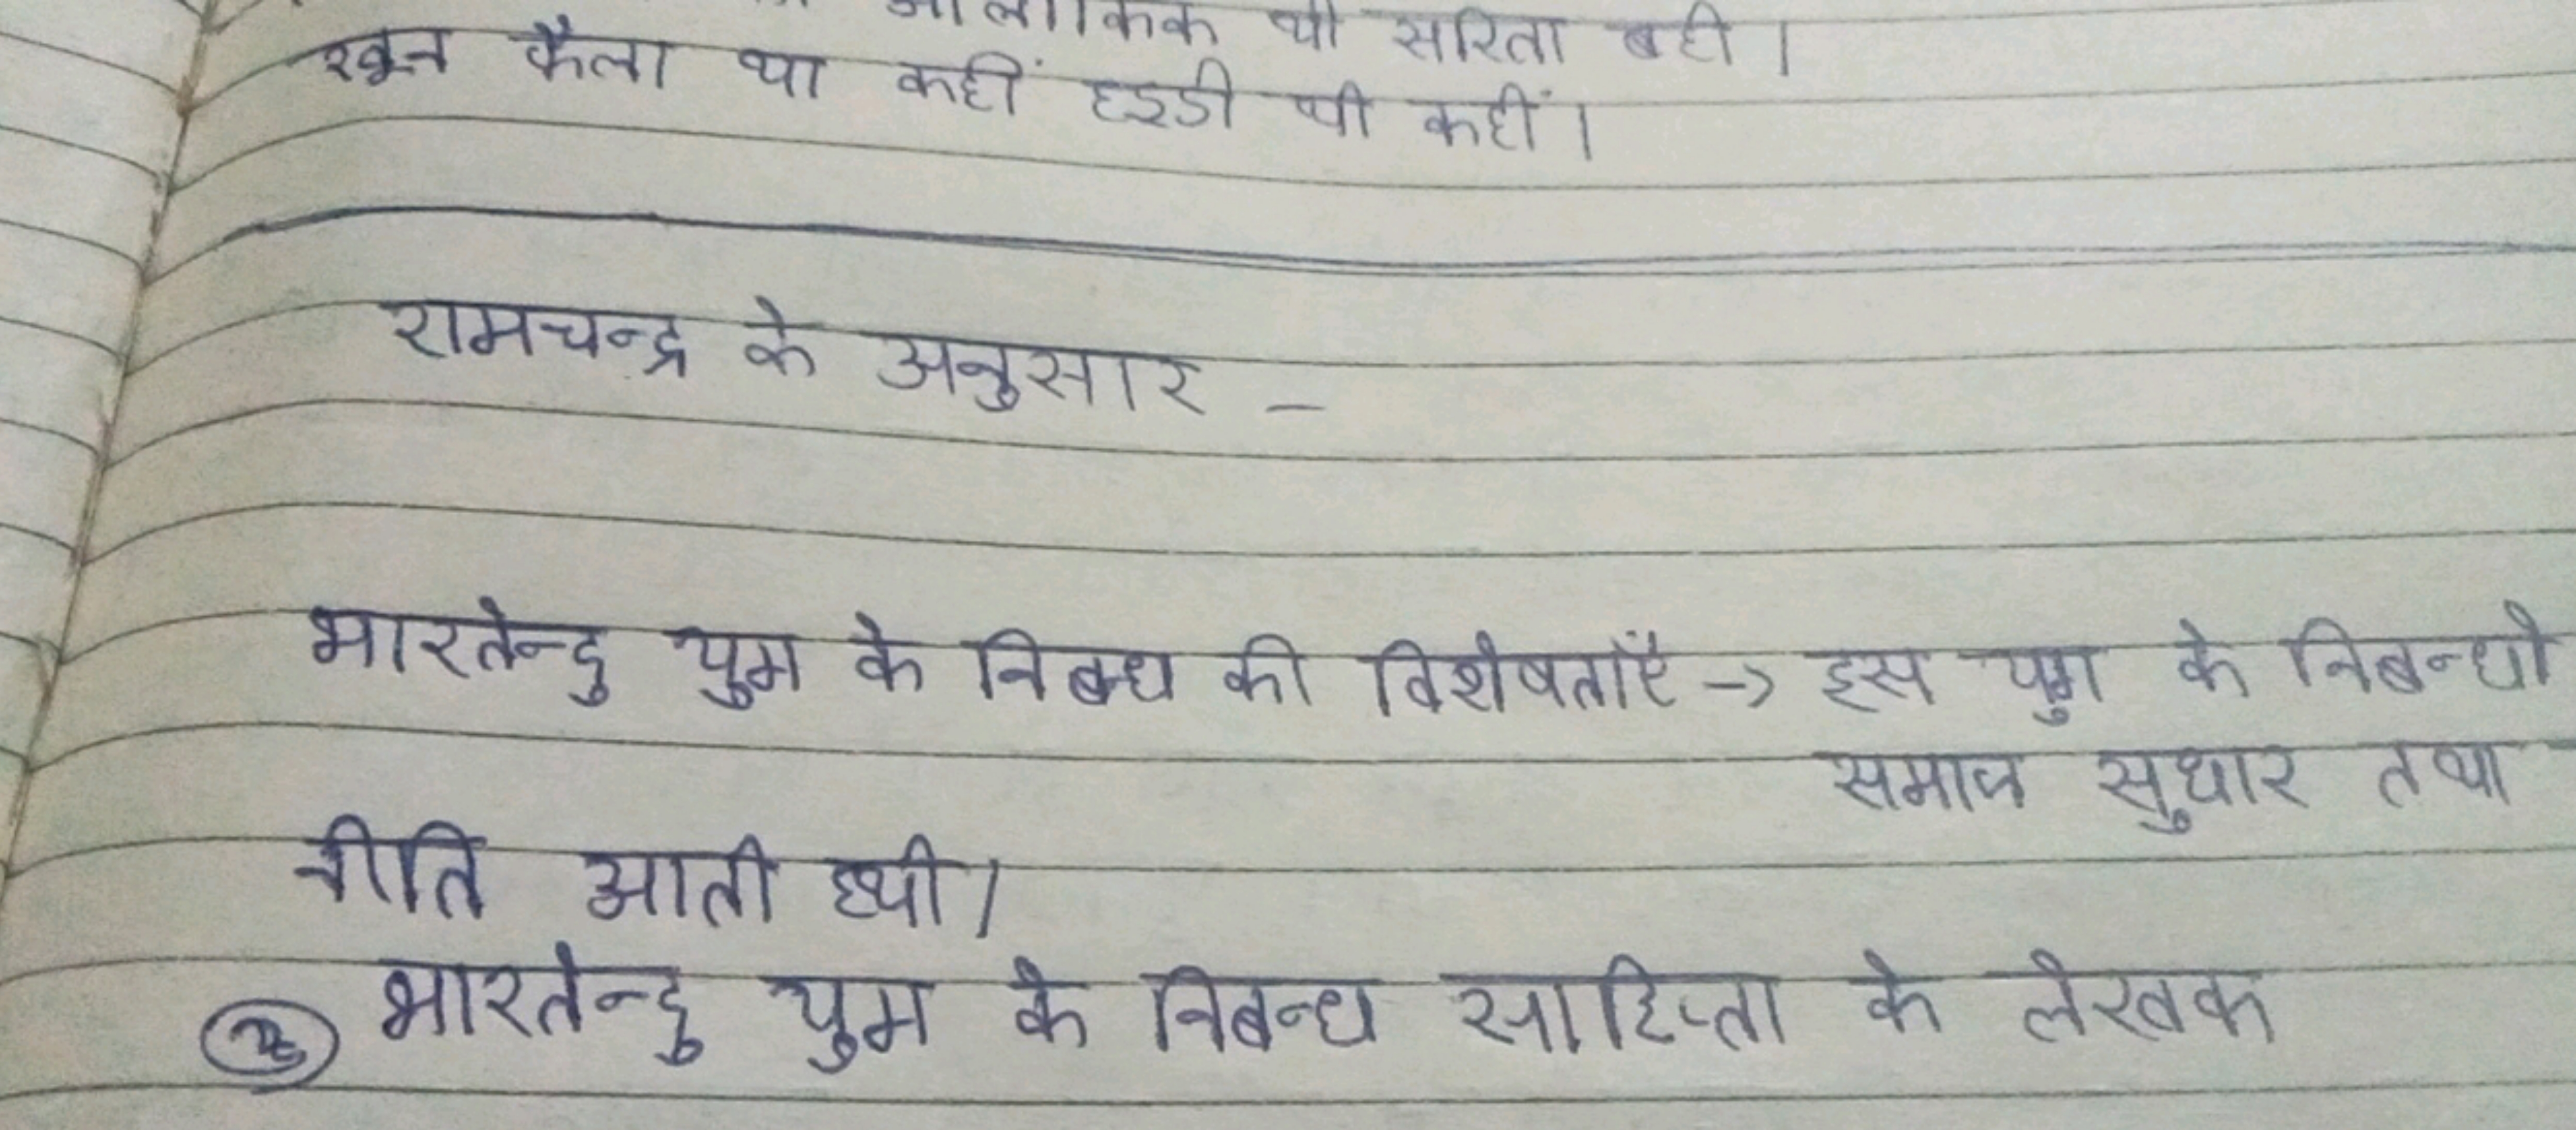 थी सरिता बही ।
खून फैला था कहीं हड्डी थी कहीं ।
रामचन्द्र के अनुसार -
भारतेन्दु युग के निबन्ध की विशेषताएँ -> इस युग के निबन्धो
समाज सुधार तथा
नीति आती थी ।
② भारतेन्दु युग के निबन्ध साहित्ता के लेखक